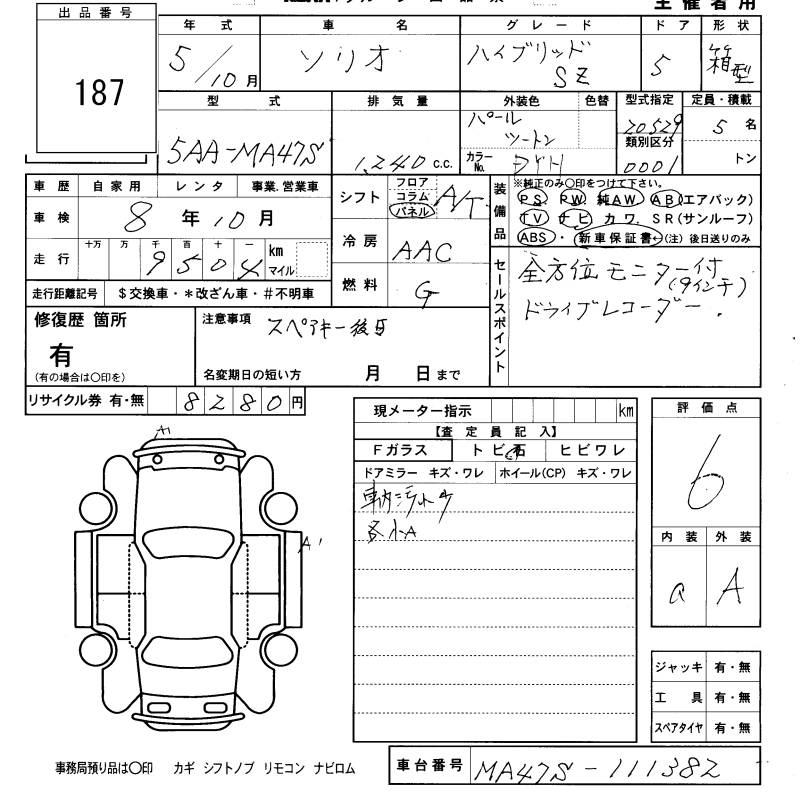 主催者用
出品番号
187
年式 車名 グレード ドア 形状
5/10月 ソリオ ハイブリッド SZ 5 箱型
型式 排気量 外装色 色替 型式指定 定員・積載
5AA-MA47S 1,240 c.c. パール ツートン 20529 5名
カラーNo. 類別区分 0001 トン
車歴 自家用 レンタ 事業.営業車
車検 8年10月
走行 十万 万 千 百 十 一 km マイル
9504
走行距離記号 $交換車・*改ざん車・#不明車
シフト フロア コラム パネル A/T
冷房 AAC
燃料 G
装備品
※純正のみ○印をつけて下さい。
PS PW 純AW AB(エアバック)
TV ナビ カワ. SR(サンルーフ)
ABS・新車保証書←(注)後日送りのみ
セールスポイント
全方位モニター付(9インチ)
ドライブレコーダー.
修復歴 箇所
有
(有の場合は○印を)
注意事項 スペアキー後日
名変期日の短い方 月 日まで
リサイクル券 有・無 8280円
現メーター指示 km
【査定員記入】
Fガラス トビ石 ヒビワレ
ドアミラー キズ・ワレ ホイール(CP) キズ・ワレ
各小A
評価点
6
内装 外装
a A
A'
ジャッキ 有・無
工具 有・無
スペアタイヤ 有・無
事務局預り品は○印 カギ シフトノブ リモコン ナビロム
車台番号 MA47S-111382